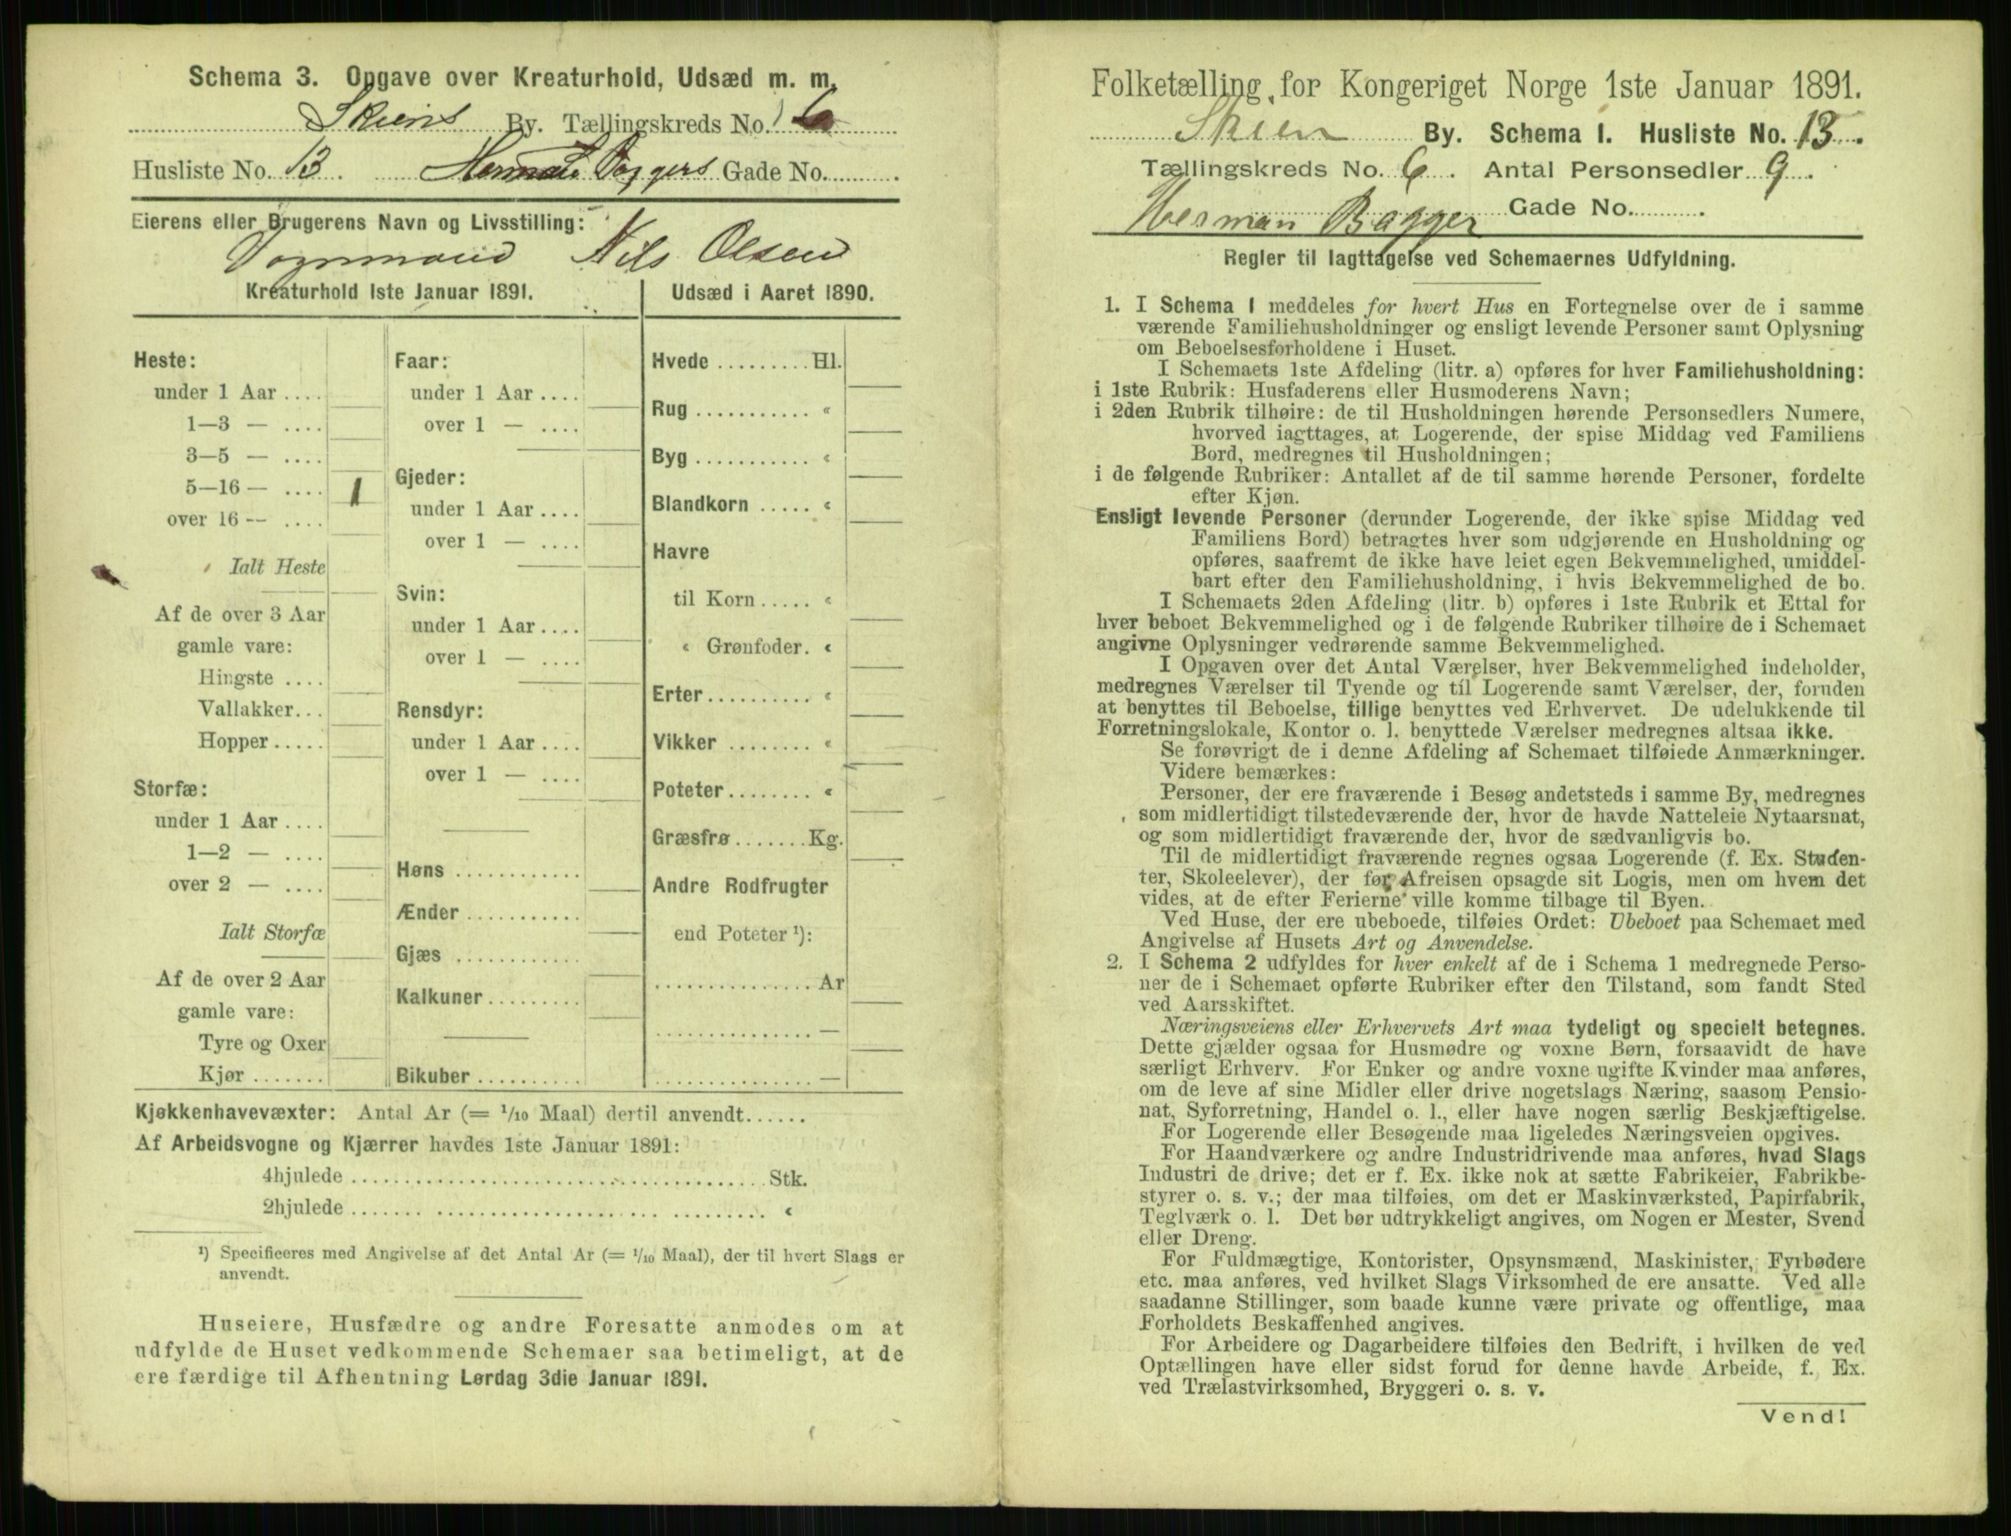 Schema 3. Opgave over Kreaturhold, Udsæd m. m.
Skiens By. Tællingskreds No. 6
Husliste No. 13. Herman Baggers Gade No.
Eierens eller Brugerens Navn og Livsstilling:
Vognmand Nils Olsen
Kreaturhold 1ste Januar 1891.
Heste:
under 1 Aar ....
1—3 — ....
3—5 — ....
5—16 — .... 1
over 16 — ....
Ialt Heste
Af de over 3 Aar
gamle vare:
Hingste ....
Vallakker...
Hopper.....
Storfæ:
under 1 Aar ....
1—2 — ....
over 2 — ....
Ialt Storfæ
Af de over 2 Aar
gamle vare:
Tyre og Oxer
Kjør .......
Faar:
under 1 Aar ....
over 1 — ....
Gjeder:
under 1 Aar ....
over 1 — ....
Svin:
under 1 Aar ....
over 1 — ....
Rensdyr:
under 1 Aar ....
over 1 — ....
Høns ............
Ænder ...........
Gjæs ............
Kalkuner.........
Bikuber..........
Udsæd i Aaret 1890.
Hvede ......... Hl.
Rug ........... «
Byg ........... «
Blandkorn ..... «
Havre
til Korn ..... «
« Grønfoder. «
Erter .......... «
Vikker ........ «
Poteter........ «
Græsfrø ....... Kg.
Andre Rodfrugter
end Poteter ¹):
............... Ar
............... —
............... —
Kjøkkenhavevæxter: Antal Ar (= 1/10 Maal) dertil anvendt......
Af Arbeidsvogne og Kjærrer havdes 1ste Januar 1891:
4hjulede ....................................... Stk.
2hjulede ....................................... «
¹) Specificeres med Angivelse af det Antal Ar (= 1/10 Maal), der til hvert Slags er
anvendt.
Huseiere, Husfædre og andre Foresatte anmodes om at
udfylde de Huset vedkommende Schemaer saa betimeligt, at de
ere færdige til Afhentning Lørdag 3die Januar 1891.
Folketælling for Kongeriget Norge 1ste Januar 1891.
Skien By. Schema 1. Husliste No. 13.
Tællingskreds No. 6. Antal Personsedler 9.
Herman Bagger Gade No.
Regler til Iagttagelse ved Schemaernes Udfyldning.
1. I Schema 1 meddeles for hvert Hus en Fortegnelse over de i samme
værende Familiehusholdninger og ensligt levende Personer samt Oplysning
om Beboelsesforholdene i Huset.
I Schemaets 1ste Afdeling (litr. a) opføres for hver Familiehusholdning:
i 1ste Rubrik: Husfaderens eller Husmoderens Navn;
i 2den Rubrik tilhøire: de til Husholdningen hørende Personsedlers Numere,
hvorved iagttages, at Logerende, der spise Middag ved Familiens
Bord, medregnes til Husholdningen;
i de følgende Rubriker: Antallet af de til samme hørende Personer, fordelte
efter Kjøn.
Ensligt levende Personer (derunder Logerende, der ikke spise Middag ved
Familiens Bord) betragtes hver som udgjørende en Husholdning og
opføres, saafremt de ikke have leiet egen Bekvemmelighed, umiddel-
bart efter den Familiehusholdning, i hvis Bekvemmelighed de bo.
I Schemaets 2den Afdeling (litr. b) opføres i 1ste Rubrik et Ettal for
hver beboet Bekvemmelighed og i de følgende Rubriker tilhøire de i Schemaet
angivne Oplysninger vedrørende samme Bekvemmelighed.
I Opgaven over det Antal Værelser, hver Bekvemmelighed indeholder,
medregnes Værelser til Tyende og til Logerende samt Værelser, der, foruden
at benyttes til Beboelse, tillige benyttes ved Erhvervet. De udelukkende til
Forretningslokale, Kontor o. l. benyttede Værelser medregnes altsaa ikke.
Se forøvrigt de i denne Afdeling af Schemaet tilføiede Anmærkninger.
Videre bemærkes:
Personer, der ere fraværende i Besøg andetsteds i samme By, medregnes
som midlertidigt tilstedeværende der, hvor de havde Natteleie Nytaarsnat,
og som midlertidigt fraværende der, hvor de sædvanligvis bo.
Til de midlertidigt fraværende regnes ogsaa Logerende (f. Ex. Studen-
ter, Skoleelever), der før Afreisen opsagde sit Logis, men om hvem det
vides, at de efter Ferierne ville komme tilbage til Byen.
Ved Huse, der ere ubeboede, tilføies Ordet: Ubeboet paa Schemaet med
Angivelse af Husets Art og Anvendelse.
2. I Schema 2 udfyldes for hver enkelt af de i Schema 1 medregnede Perso-
ner de i Schemaet opførte Rubriker efter den Tilstand, som fandt Sted
ved Aarsskiftet.
Næringsveiens eller Erhvervets Art maa tydeligt og specielt betegnes.
Dette gjælder ogsaa for Husmødre og voxne Børn, forsaavidt de have
særligt Erhverv. For Enker og andre voxne ugifte Kvinder maa anføres,
om de leve af sine Midler eller drive nogetslags Næring, saasom Pensio-
nat, Syforretning, Handel o. l., eller have nogen særlig Beskjæftigelse.
For Logerende eller Besøgende maa ligeledes Næringsveien opgives.
For Haandværkere og andre Industridrivende maa anføres, hvad Slags
Industri de drive; det er f. Ex. ikke nok at sætte Fabrikeier, Fabrikbe-
styrer o. s. v.; der maa tilføies, om det er Maskinværksted, Papirfabrik,
Teglværk o. l. Det bør udtrykkeligt angives, om Nogen er Mester, Svend
eller Dreng.
For Fuldmægtige, Kontorister, Opsynsmænd, Maskinister, Fyrbødere
etc. maa anføres, ved hvilket Slags Virksomhed de ere ansatte. Ved alle
saadanne Stillinger, som baade kunne være private og offentlige, maa
Forholdets Beskaffenhed angives.
For Arbeidere og Dagarbeidere tilføies den Bedrift, i hvilken de ved
Optællingen have eller sidst forud for denne havde Arbeide, f. Ex.
ved Trælastvirksomhed, Bryggeri o. s. v.
Vend!